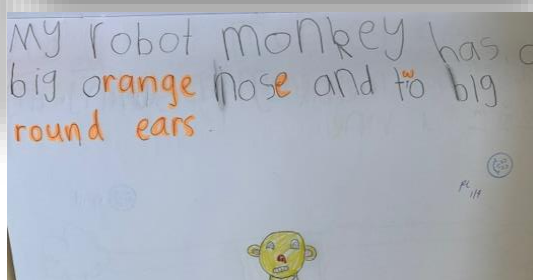 My robot monkey has a
big orange nose and two big
round ears.